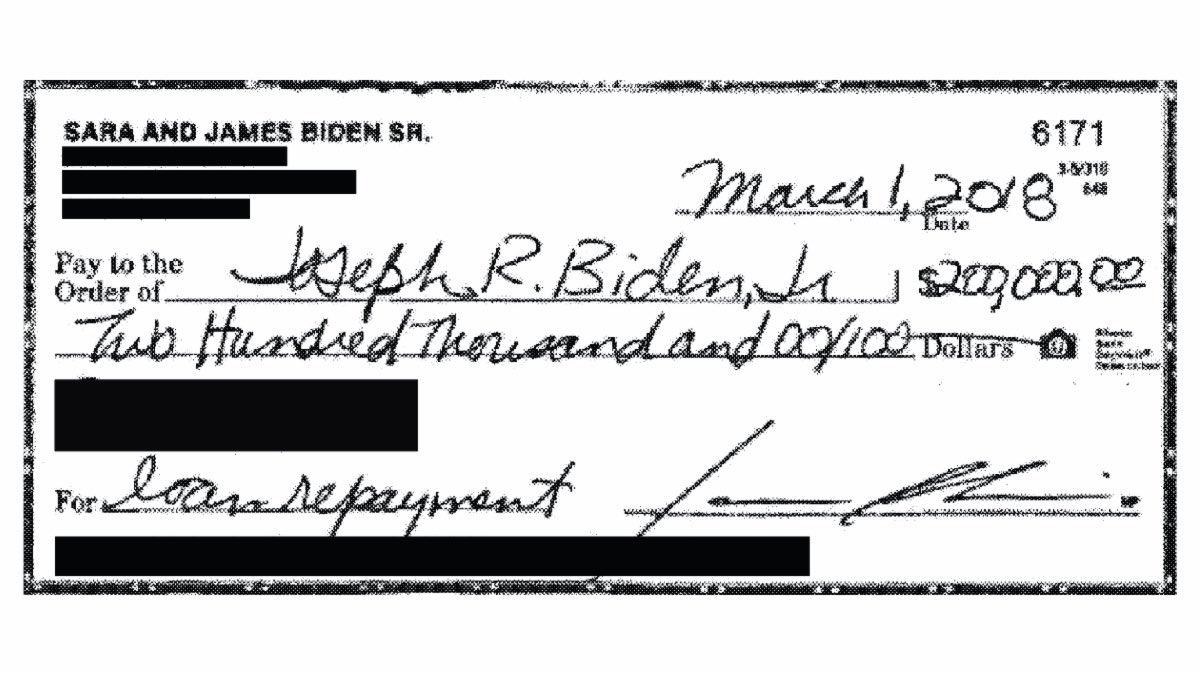 SARA AND JAMES BIDEN SR.
6171
3-5/310
March 1, 2018
Date
Pay to the
Order of Joseph R. Biden, Jr $200,000.00
Two Hundred Thousand and 00/100 Dollars
For loan repayment
MP